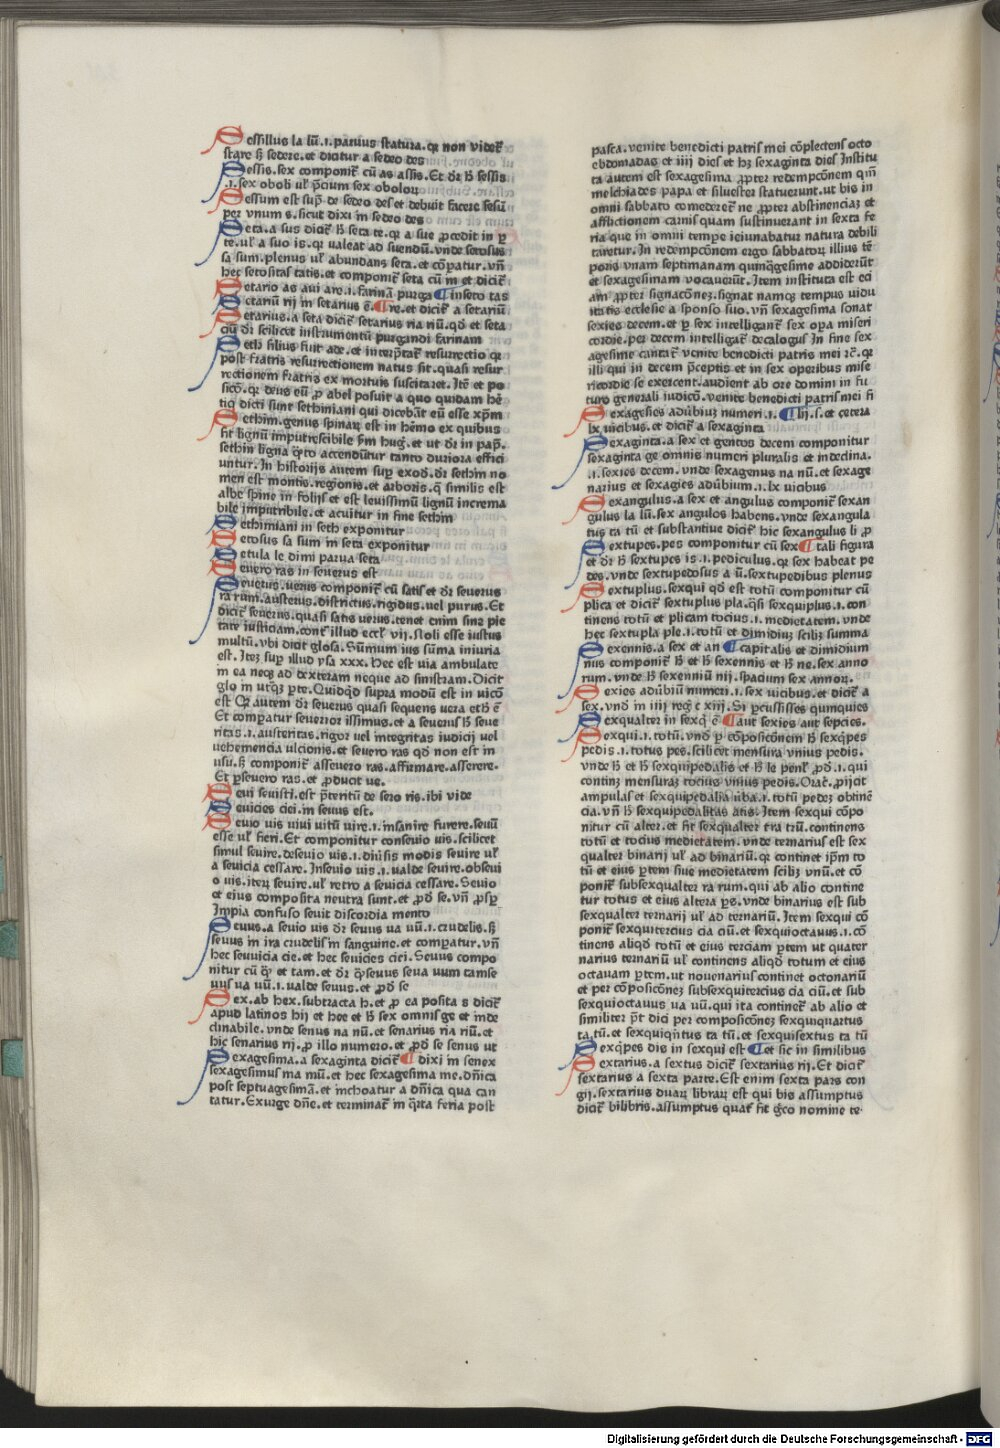 Sessillus la lū.i.paruus statura.qꝛ non videt᷑
stare sꝫ sedere.et dicitur a sedeo des
Sessis.sex componit᷑ cū as assis.Et dꝛ ɦ sessis
.i.sex oboli ul' p̄cium sex oboloꝝ
Sessum est sup̄ de sedeo des et debuit facere sesū
per vnum s.sicut dixi in sedeo des
Seta.a sus dicit᷑ ɦ seta te.qꝛ a sue ꝓcedit in ꝑ
te.ul' a suo is.qꝛ valeat ad suendū.vnde setosus
sa sum.plenus ul' abundans seta.et cōpatur.vn̄
hec setositas tatis.et componit᷑ seta cū in et dicit᷑
Setario as aui are.i.farinā purga ¶ inseto tas
Setariū rij in setarius ē. ¶ re.et dicit᷑ a setariū
Setarius.a seta dicit᷑ setarius ria riū.qd̄ et seta
ciū dꝛ scilicet instrumentū purgandi farinam
Seth filius fuit ade.et interp̄tat᷑ resurrectio qꝛ
post fratris resurrectionem natus sit.quasi resur
rectionem fratris ex mortuis suscitaret.Itē et po
sicō.qꝛ deus eū ꝓ abel posuit a quo quidam hē
tiq dicti sunt sethiniani qui dicebāt eū esse xp̄m
Sethim.genus spinaꝝ est in hēmo ex quibus
fit lignū imputrescibile s̄m hug̃.et ut dꝛ in pap̄.
sethin ligna q̄to accendūtur tanto duriora effici
untur.In historijs autem sup exod̄.dꝛ sethin no
men est montis.regionis.et arboris.q̄ similis est
albe spine in folijs et est leuissimū lignū increma
bile imputribile.et acuitur in fine sethim
Sethimiani in seth exponitur
Setosus sa sum in seta exponitur
Setula le dimi parua seta
Seuero ras in seuerus est
Seuerus.uerus componit᷑ cū satis et dꝛ seuerus
ra rum.austerus.districtus.rigidus.uel purus.Et
dicit᷑ seuerus.quasi satis uerus.tenet enim sine pie
tate iusticiam.cont᷑ illud eccl' vij.Noli esse iustus
multū.vbi dicit glosa.Sūmum ius sūma iniuria
est.Iteꝫ sup illud ysa xxx.Hec est uia ambulate
in ea neqꝫ ad dexteram neque ad sinistram.Dicit
glo in utrqꝫ ꝑte.Quidqd supra modū est in uicō
est Qꝛ autem dꝛ seuerus quasi sequens uera etɦ ē
Et comꝑatur seuerior issimus.et a seuerus ɦ seue
ritas.i.austeritas.rigor uel integritas iudicij uel
uehemencia ulcionis.et seuero ras qd̄ non est in
usu.sꝫ componit᷑ asseuero ras.affirmare.asserere.
Et ꝑseuero ras.et ꝓducit ue.
Seui seuisti.est p̄teritū de sero ris.ibi vide
Seuicies ciei.in seuus est.
Seuio uis uiui uitū uire.i.insanire furere.seuū
esse ul' fieri.Et componitur conseuio uis.scilicet
simul seuire.deseuio uis.i.diu͛sis modis seuire ul'
a seuicia cessare.Inseuio uis.i.ualde seuire.obseui
o uis.iteꝝ seuire.ul' retro a seuicia cessare.Seuio
et eius composita neutra sunt.et ꝓd̄ se.vn̄ ꝓsꝑ
Impia confuso seuit discordia mento
Seuus.a seuio uis dꝛ seuus ua uū.i.crudelis.sꝫ
seuus in ira crudelis in sanguine.et comꝑatur.vn̄
hec seuuicia cie.et hec seuicies ciei.Seuus compo
nitur cū ꝙ et tam.et dꝛ ꝙseuus seua uum tamse
uus ua uū.i.ualde seuus.et ꝓd̄ se
Sex.ab hex.subtracta h.et ꝓ ea posita s dicit᷑
apud latinos hij et hee et ɦ sex omnis ge et inde
clinabile.vnde senus na nū.et senarius ria riū.et
hic senarius rij.ꝓ illo numero.et ꝓd̄ se senus ut
Sexagesima.a sexaginta dicit᷑ ¶ dixi in senex
sexagesimus ma mū.et hec sexagesima me.dn̄ica
post septuagesimā.et inchoatur a dn̄ica qua can
tatur.Exurge dn̄e.et terminat᷑ in q̄rta feria post
pasca.venite benedicti patris mei cōplectens octo
ebdomadas et iiij dies et hꝫ sexaginta dies Institu
ta autem est sexagesima ꝓpter redempcōnem qm̄
melchiades papa et siluester statuerunt.ut bis in
omni sabbato comederet᷑ ne ꝓpter abstinenciaꝫ et
afflictionem carnis quam sustinuerant in sexta fe
ria que in omni tempe ieiunabatur natura debili
taretur.In redempcōnem ergo sabbatoꝝ illius tē
poris vnam septimanam quinqꝫgesime addiderūt
et sexagesimam vocauerūt.Item instituta est eci
am ꝓpter significacōneꝫ.signat namqꝫ tempus uidu
itatis ecclesie a sponso suo.vn̄ sexagesima sonat
sexies decem.et ꝑ sex intelligant᷑ sex oꝑa miseri
cordie.per decem intelligit᷑ decalogus In fine sex
agesime cantat᷑ venite benedicti patris mei ⁊c̄.qꝛ
illi qui in decem p̄ceptis et in sex operibus mise
ricordie se exercent.audient ab ore domini in fu
turo generali iudicō.venite benedicti patris mei ñ
Sexagesies adūbiuꝫ numeri.i. ¶ lij.s.et cetera
lx uicibus.et dicit᷑ a sexaginta
Sexaginta.a sex et gentos decem componitur
sexaginta ge omnis numeri pluralis et indeclina.
.i.sexies decem.vnde sexagenus na nū.et sexage
narius et sexagies adūbium.i.lx uicibus
Sexangulus.a sex et angulus componit᷑ sexan
gulus la lū.sex angulos habens.vnde sexangula
tus ta tū et substantiue dicit᷑ hic sexangulus li ꝓ
Sextupes.pes componitur cū sex ¶ tali figura
et dꝛ ɦ sextupes is.i.pediculus.qꝛ sex habeat pe
des.vnde sextupedosus a ū.sextupedibus plenus
Sextuplus.sexqui qd̄ est totū componitur cū
plica et dicit᷑ sextuplus pla.q̄si sexquiplus.i.con
tinens totū et plicam tocius.i.medietatem.vnde
hec sextupla ple.i.totū et dimidiuꝫ sciliꝫ summa
Sexennis.a sex et an ¶ capitalis et dimidium
nus componit᷑ ɦ et ɦ sexennis et ɦ ne.sex anno
rum.vnde ɦ sexenniū nij.spacium sex annoꝝ.
Sexies adūbiū numeri.i.sex uicibus.et dicit᷑ a
sex.vnd̄ in iiij reg̃ c xiij.Si ꝑcussisses quinquies
Sexqualter in sexq̄ ē ¶ aut sexies aut sepcies.
Sexqui.i.totū.vnd̄ ꝑ cōposicōnem ɦ sexqꝑes
pedis.i.totus pes.scilicet mensura vnius pedis.
vnde ɦ et ɦ sexquipedalis et ɦ le penl' ꝓd̄.i.qui
continꝫ mensuraꝫ tocius vnius pedis.Orac̄.ꝓijcit
ampulas et sexquipedalia u͛ba.i.totū pedeꝫ obtinē
cia.vn̄ ɦ sexquipedalitas atis.Item sexqui cōpo
nitur cū alter.et fit sexqualter tra trū.continens
totū et tocius medietatem.vnde ternarius est sex
qualter binarij ul' ad binariū.qꝛ continet ip̄m to
tū et eius ꝑtem siue medietatem sciliꝫ vnū.et cō
ponit᷑ subsexqualter ra rum.qui ab alio contine
tur totus et eius altera ꝑs.vnde binarius est sub
sexqualter ternarij ul' ad ternariū.Item sexqui cō
ponit᷑ sexquitercius cia ciū.et sexquioctauus.i.cō
tinens aliqd̄ totū et eius terciam ꝑtem ut quater
narius ternariū ul' continens aliqd̄ totum et eius
octauam ꝑtem.ut nouenarius continet octonariū
et per cōposicōneꝫ subsexquitercius cia ciū.et sub
sexquioctauus ua uū.qui ita continet᷑ ab alio et
similiter p̄t dici per composicōneꝫ sexquiquartus
ta tū.et sexquiqn̄tus ta tū.et sexquisextus ta tū
Sexqꝑes dis in sexqui est ¶ et sic in similibus
Sextarius.a sextus dicit᷑ sextarius rij.Et dicit᷑
sextarius a sexta parte.Est enim sexta pars con
gij.sextarius duaꝝ libraꝝ est qui bis assumptus
dicit᷑ bilibris.assumptus quat᷑ fit gͨco nomine te
Digitalisierung gefördert durch die Deutsche Forschungsgemeinschaft - DFG